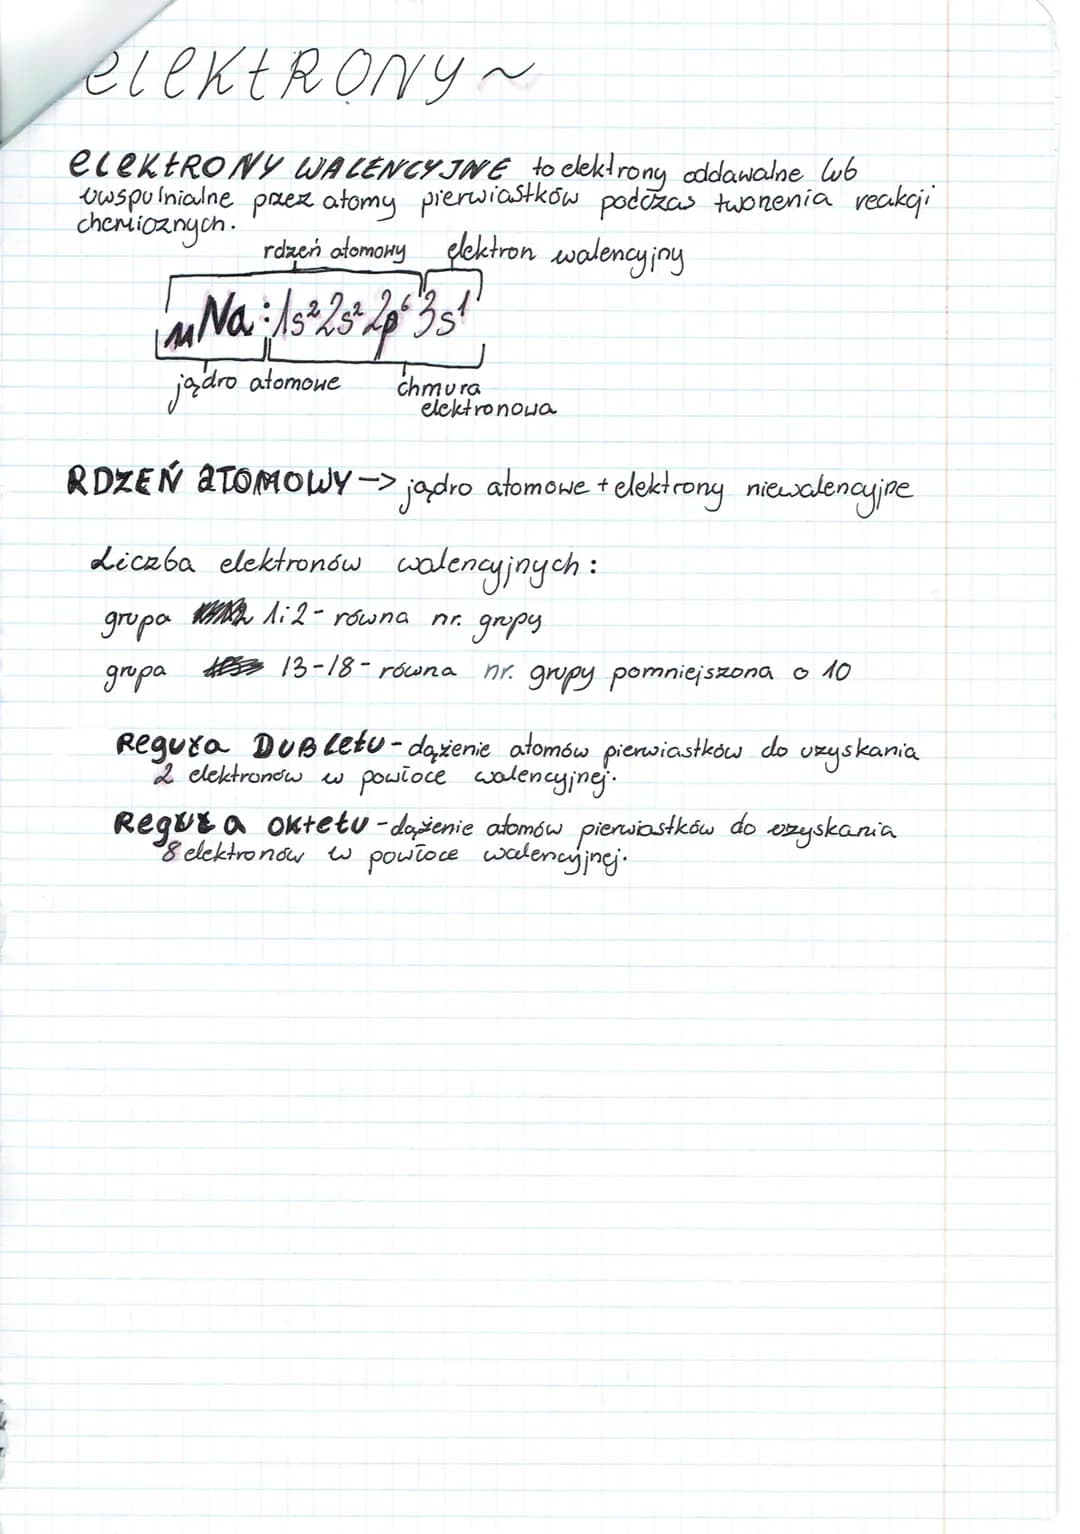 elektRONY~
elektRONY WALENCYJNE to elektrony oddawalne lub
uwspulnialne przez atomy pierwiastków podczas tworzenia reakcji
chemicznych.
rdzeń atomowy elektron walencyjny
₁₁Na:1s²2s²2p⁶3s¹
jądro atomowe chmura
elektronowa
RDZEŃ aTOMOWY -> jądro atomowe + elektrony niewalencyjne
Liczba elektronów walencyjnych:
grupa 1i2 - równa nr. grupy
grupa 13-18 - równa nr. grupy pomniejszona o 10
Reguła DUBletu - dążenie atomów pierwiastków do uzyskania
2 elektronów w powłoce walencyjnej.
Reguła oktetu - dążenie atomów pierwiastków do uzyskania
8 elektronów w powłoce walencyjnej.